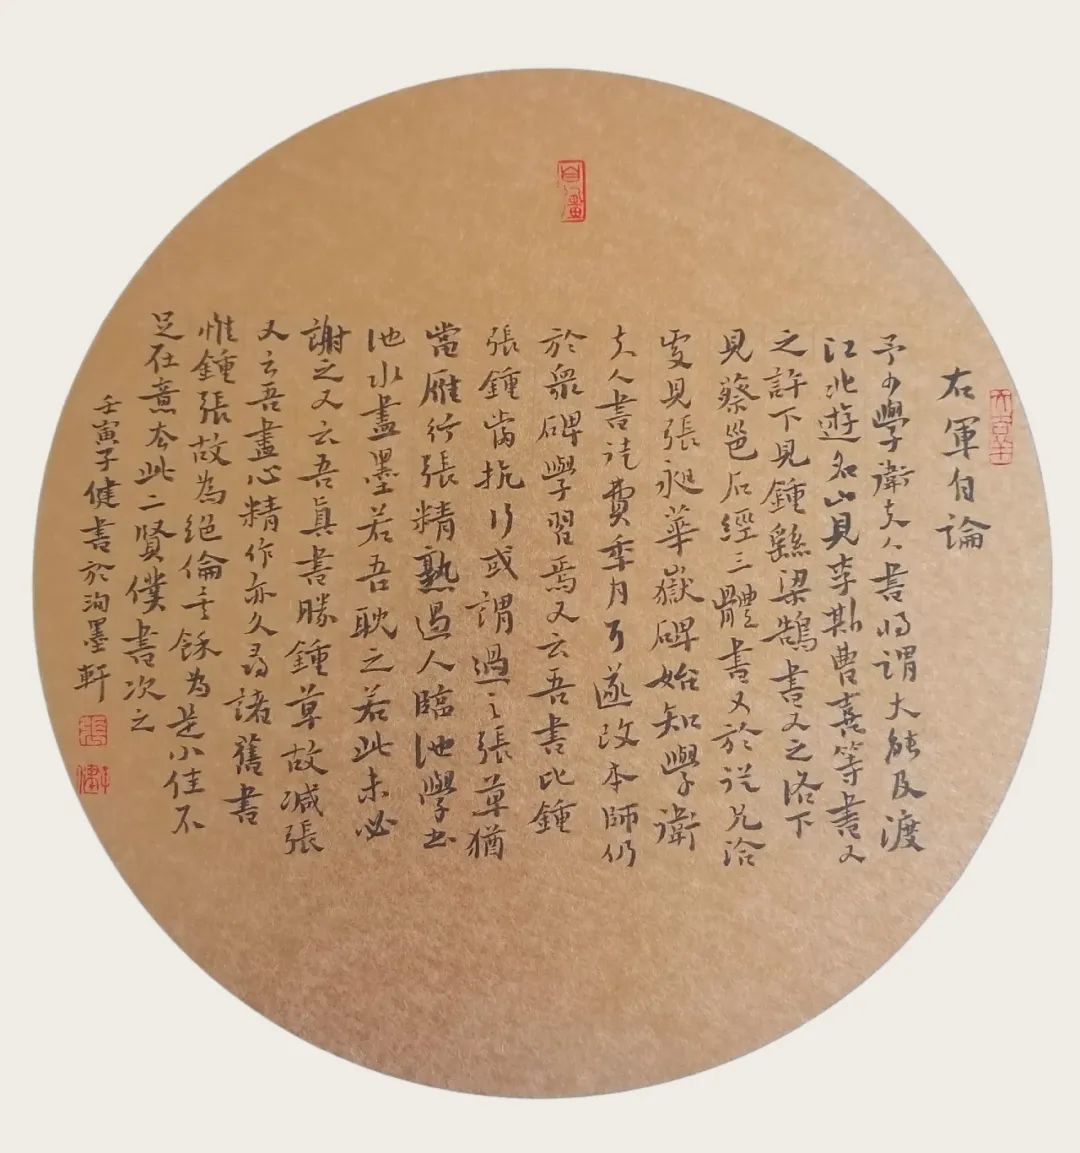 右軍自論
予少學衛夫人書將謂大能及渡
江北遊名山見李斯曹喜等書又
之許下見鍾繇梁鵠書又之洛下
見蔡邕石經三體書又於從兄洽
處見張昶華嶽碑始知學衛
夫人書徒費年月耳遂改本師仍
於眾碑學習焉又云吾書比鍾
張鍾當抗行或謂過之張草猶
當雁行張精熟過人臨池學書
池水盡墨若吾耽之若此未必
謝之又云吾真書勝鍾草故減張
又云吾盡心精作亦久尋諸舊書
惟鍾張故為絕倫其餘為是小佳不
足在意去此二賢僕書次之
壬寅子健書於洵墨軒